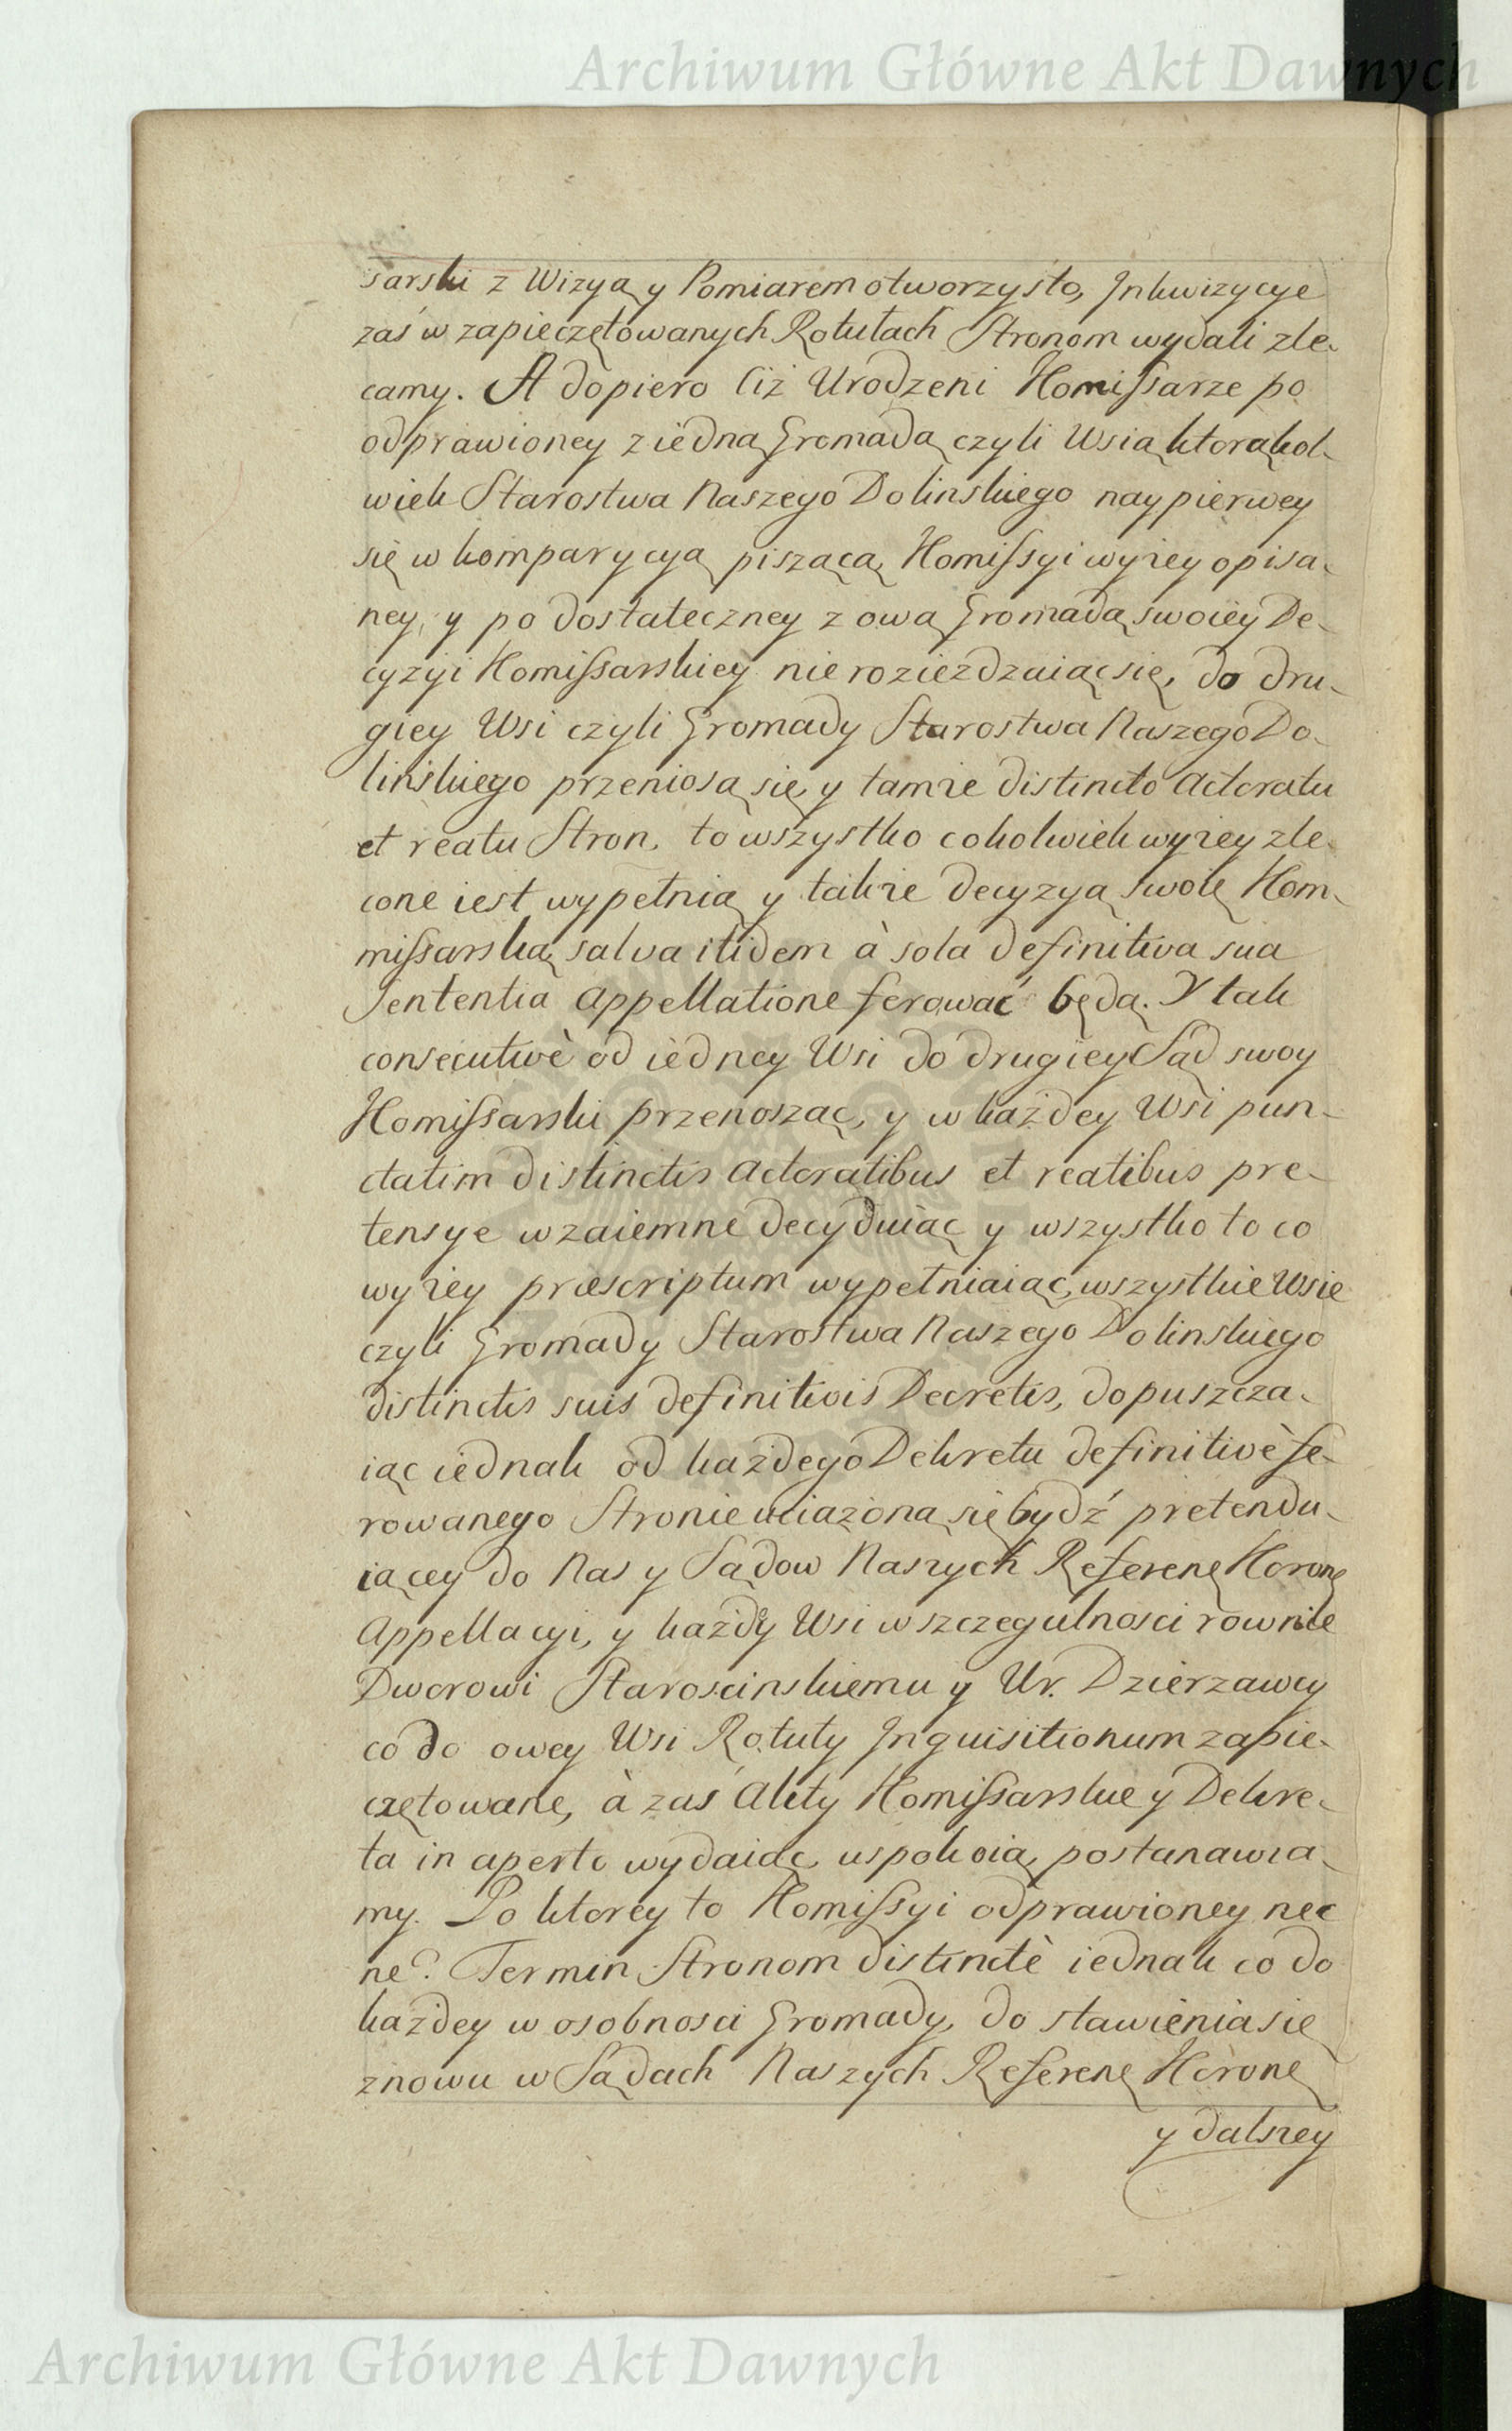 Archiwum Główne Akt Dawnych
sarski z Wizyą y Pomiarem otworzysto, Inkwizycye
zaś w zapieczętowanych Rotułach Stronom wydali zle-
camy. A dopiero liż Urodzeni Kommissarze po
odprawioney z iedną Gromadą czyli Wsią ktorąkol-
wiek Starostwa Naszego Dolinskiego naypierwey
się w komparycyą piszącą Komissyi wyżey opisa-
ney, y po dostateczney z ową Gromadą swoiey De-
cyzyi Komissarskiey nie rozieżdzaiąc się, do dru-
giey Wsi czyli Gromady Starostwa Naszego Do-
linskiego przeniosą się, y tamże distincto Actoratu
et reatu Stron, to wszystko cokolwiek wyżey zle-
cone iest wypełnią y także decyzyą swoię Kom-
missarską, salva itidem à sola definitiva sua
Sententia Appellatione ferować będą. Y tak
consecutivè od iedney Wsi do drugiey Sąd swoy
Komissarski przenosząc, y w każdey Wsi pun-
ctatim distinctis Actoratibus et reatibus pre-
tensye wzaiemne decyduiąc y wszystko to co
wyżey præscriptum wypełniaiąc, wszystkie Wsie
czyli Gromady Starostwa Naszego Dolinskiego
distinctis suis definitivis Decretis, dopuszcza-
iąc iednak od każdego Dekretu definitivè fe-
rowanego Stronie uciążoną się bydź pretendu-
iącey do Nas y Sądow Naszych Referenc Koronc
Appellacyi, y każdy Wsi w szczegulnosci rownie
Dworowi Staroscinskiemu y Ur. Dzierzawcy
co do owey Wsi Rotuły Inquisitionum zapie-
czętowane, à zaś Akty Komissarskie y Dekre-
ta in aperto wydaiąc, uspokoią, postanawia-
my. Po ktorey to Komissyi odprawioney nec
ne? Termin Stronom distinctè iednak co do
każdey w osobnosci Gromady, do stawienia się
znowu w Sądach Naszych Referenc Koronc
y dalszey
Archiwum Główne Akt Dawnych